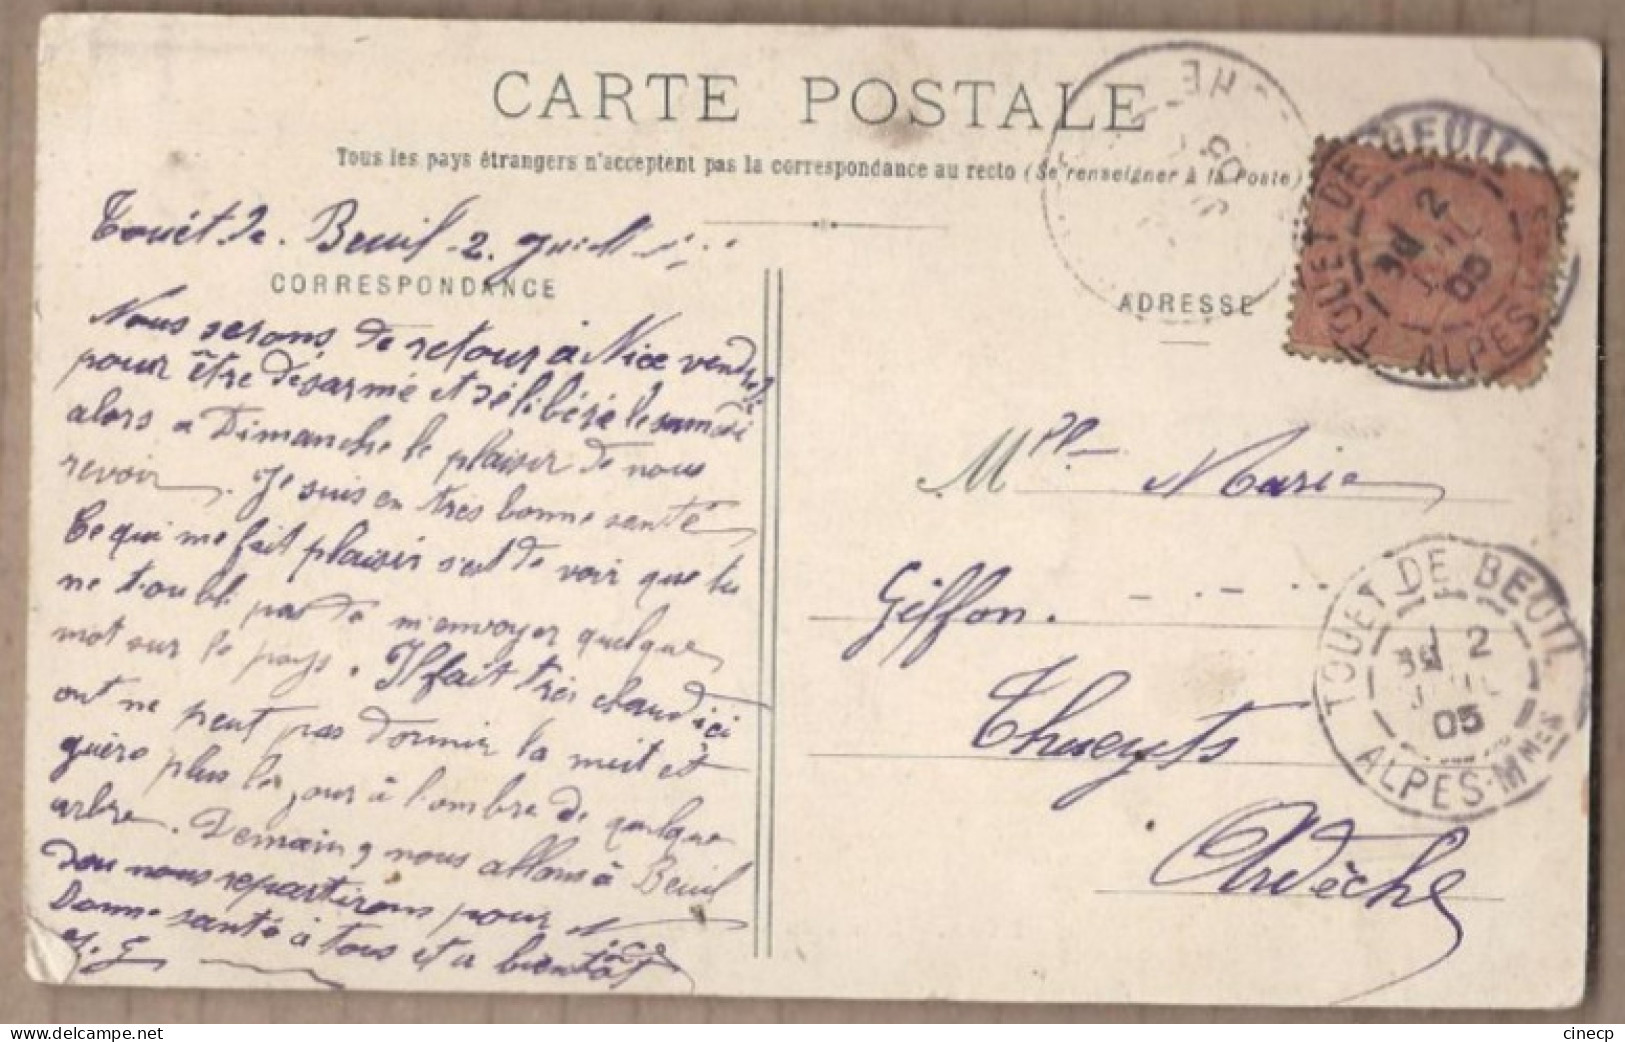 CARTE POSTALE
Tous les pays étrangers n'acceptent pas la correspondance au recto (Se renseigner à la Poste)
Touët de Beuil 2 Juill
CORRESPONDANCE
ADRESSE
Nous serons de retour à Nice vendredi
pour être désarmé et délibéré le samedi
alors a Dimanche le plaisir de nous
revoir. Je suis en très bonne santé
Ce qui me fait plaisir s'est de voir que tu
ne t'oubli pas de m'envoyer quelque
mot sur le pays. Il fait très chaud ici
ont ne peut pas dormir la nuit et
guère plus les jour à l'ombre de quelque
arbre. Demain nous allons à Beuil
dou nous repartirons pour Nice
Bonne santé à tous et a bientôt
Mlle Marie
Giffon.
Thueyts
Ardèche
TOUET DE BEUIL
2
05
ALPES-Mmes
TOUET DE BEUIL
2
05
ALPES-Mmes
HE
05
cinecp